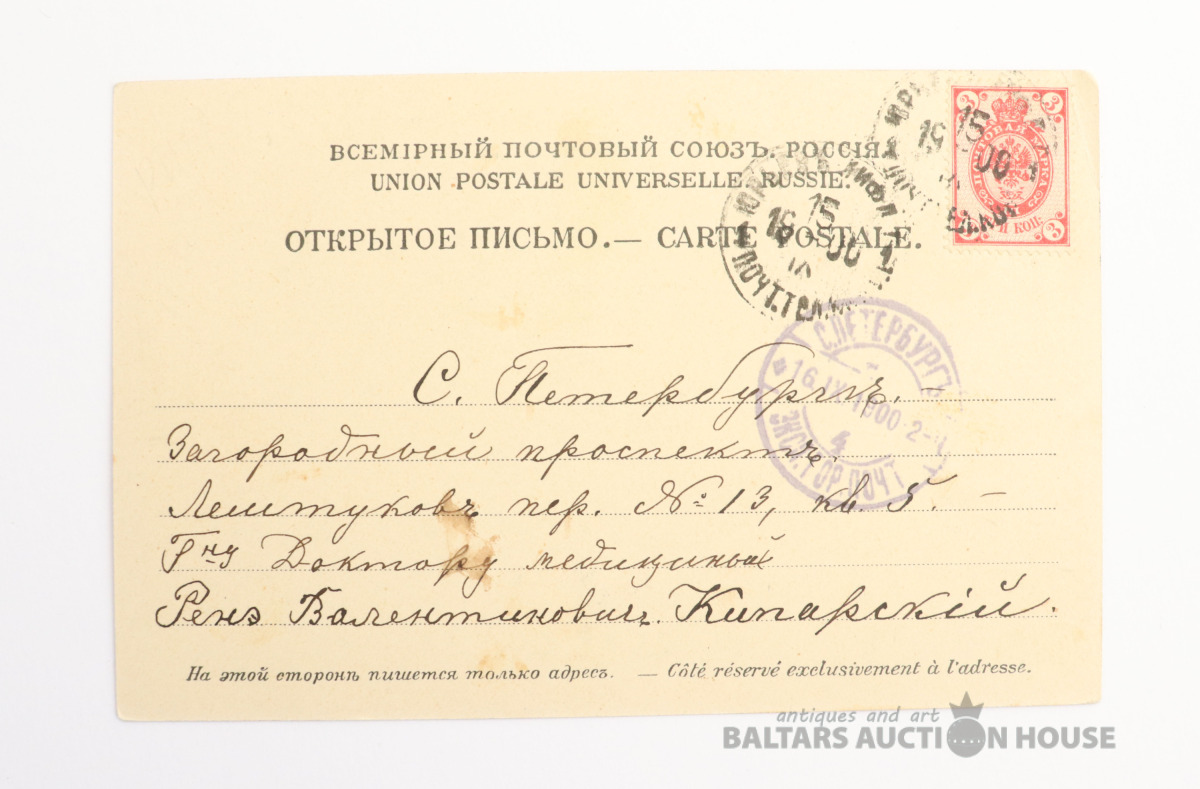 ВСЕМІРНЫЙ ПОЧТОВЫЙ СОЮЗЪ. РОССІЯ.
UNION POSTALE UNIVERSELLE. RUSSIE.
ОТКРЫТОЕ ПИСЬМО.— CARTE POSTALE.
3 3
ПОЧТОВАЯ МАРКА
3 КОП. 3
15
00
16 15 00
IX
ПОЧТ.ТЕЛ.
С.ПЕТЕРБУРГЪ
16 IX 1900
4
С. Петербургъ. –
Загородный проспектъ.
Лештуковъ пер. № 13, кв. 5. –
Гну Доктору медицины
Ренэ Валентиновичъ Кипарскій.
На этой сторонѣ пишется только адресъ. — Côté réservé exclusivement à l'adresse.
antiques and art
BALTARS AUCTION HOUSE